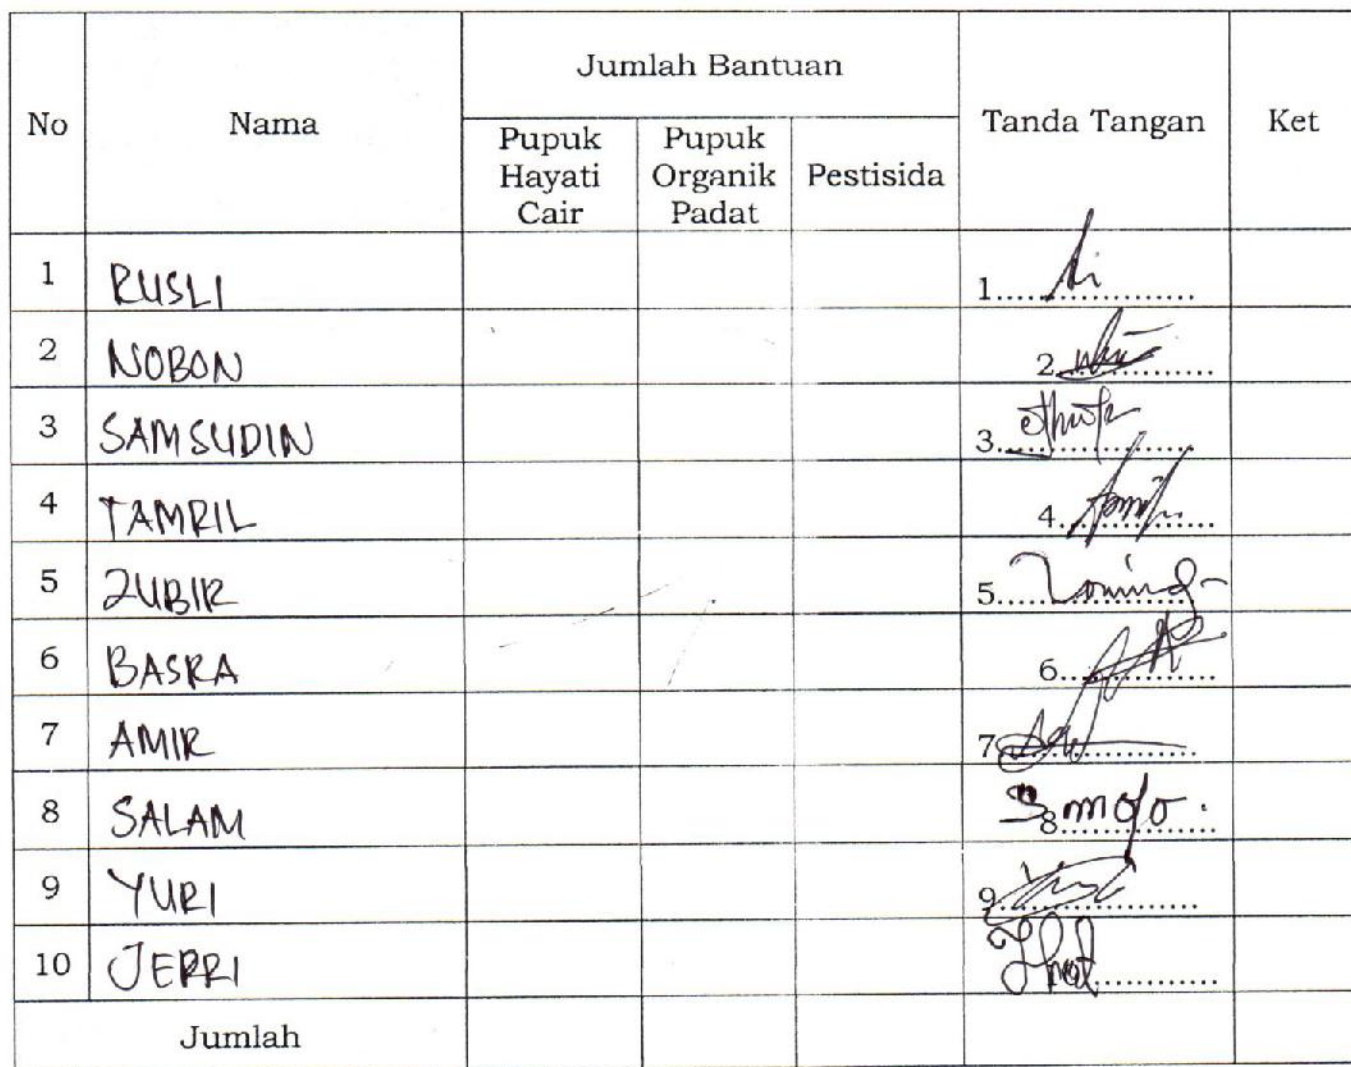 No Nama Jumlah Bantuan Tanda Tangan Ket
Pupuk Hayati Cair Pupuk Organik Padat Pestisida
1 RUSLI 1....................
2 NOBON 2................
3 SAMSUDIN 3....................
4 TAMRIL 4................
5 ZUBIR 5....................
6 BASRA 6................
7 AMIR 7....................
8 SALAM 8................
9 YURI 9....................
10 JERRI ............
Jumlah